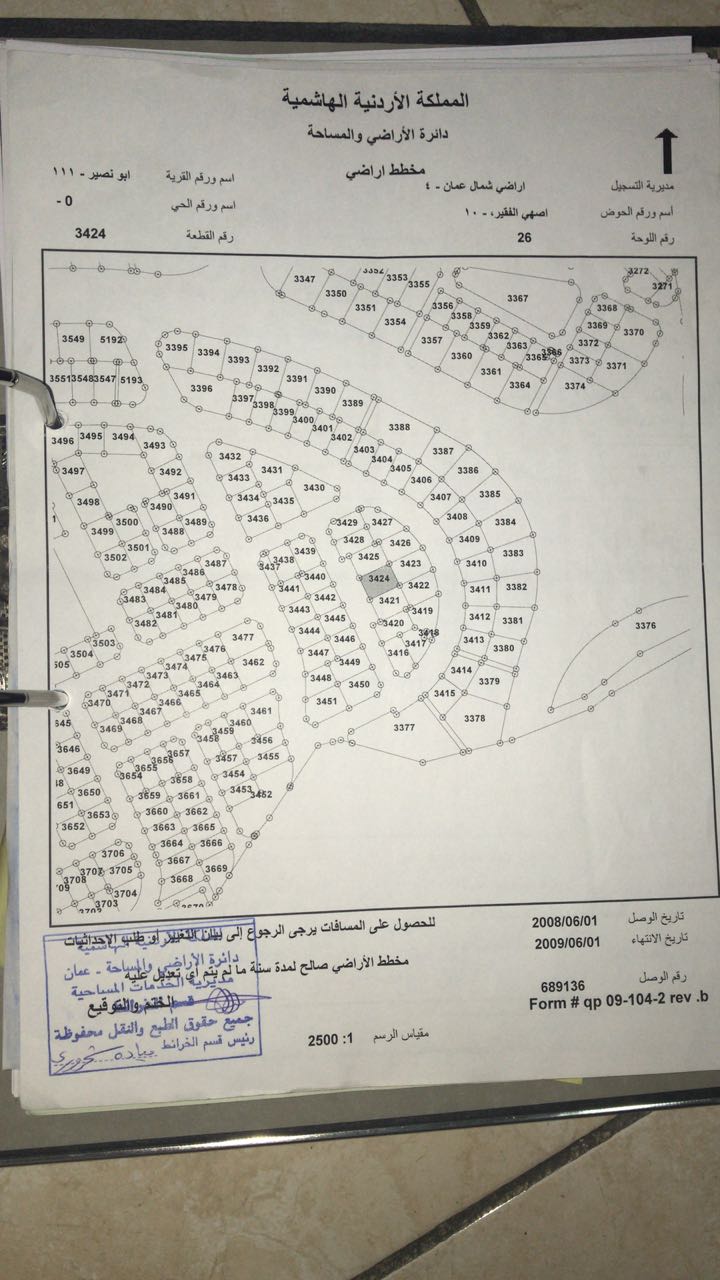 المملكة الأردنية الهاشمية
دائرة الأراضي والمساحة
مخطط اراضي
مديرية التسجيل اراضي شمال عمان - ٤ اسم ورقم القرية ابو نصير - ١١١
أسم ورقم الحوض اصهي الفقير، - ١٠ اسم ورقم الحي 0 -
رقم اللوحة 26 رقم القطعة 3424
3347 3350 3352 3353 3355 3351 3354 3367 3272 3271
3356 3358 3359 3362 3363 3365 3366 3357 3360 3361 3364
3368 3369 3370 3372 3373 3371 3374
3549 5192 3551 3548 3547 5193
3395 3394 3393 3392 3391 3390 3389 3388 3387 3386 3385 3384 3383 3382 3381 3380 3379 3378 3377 3376
3396 3397 3398 3399 3400 3401 3402 3403 3404 3405 3406 3407 3408 3409 3410 3411 3412 3413 3414 3415
3496 3495 3494 3493 3492 3491 3490 3489 3488
3497 3498 3499 3500 3501 3502
3432 3431 3430 3433 3434 3435 3436
3429 3427 3428 3426 3425 3423 3424 3422 3421 3419 3420 3418 3417 3416
3439 3438 3437 3440 3441 3442 3443 3445 3444 3446 3447 3449 3448 3450 3451
3487 3486 3485 3484 3483 3478 3479 3480 3481 3482
3503 3504 505
3477 3476 3475 3474 3473 3472 3471 3470 3462 3463 3464 3465 3466 3467 3468 3469
3461 3460 3459 3458 3456 3457 3455 3454 3453 3452
645 3646 3649 3650 651 3653 3652
3657 3656 3655 3654 3658 3659 3661 3660 3662 3663 3665 3664 3666 3667 3669 3668 3670
3706 3707 3705 3708 3704 709 3703 3702
تاريخ الوصل 2008/06/01
للحصول على المسافات يرجى الرجوع إلى بيان التغيير أو طلب الإحداثيات
تاريخ الانتهاء 2009/06/01
مخطط الأراضي صالح لمدة سنة ما لم يتم أي تعديل عليه
رقم الوصل 689136
الختم والتوقيع
Form # qp 09-104-2 rev .b
مقياس الرسم 1: 2500
دائرة الأراضي والمساحة - عمان
مديرية الخدمات المساحية
جميع حقوق الطبع والنقل محفوظة
رئيس قسم الخرائط